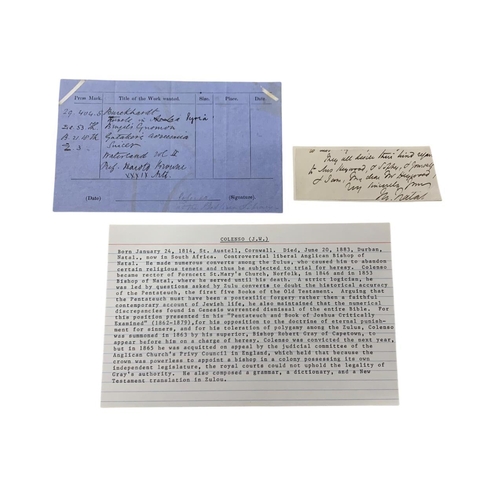 Press Mark. Title of the Work wanted. Size. Place. Date.
Burckhardt
Travels in Arabia Syria
Bengels Gnomon
Suicer
Waterland Vol II
Prof. Harold Browne
XXXIX Art.
(Date) (Signature).
They all desire their kind
to Mrs Heywood &
I am, My dear Mr Heywood,
Very sincerely yours
Natal
COLENSO (J.W.)
Born January 24, 1814, St. Austell, Cornwall. Died, June 20, 1883, Durban,
Natal, now in South Africa. Controversial liberal Anglican Bishop of
Natal. He made numerous converts among the Zulus, who caused him to abandon
certain religious tenets and thus be subjected to trial for heresy. Colenso
became rector of Forncett St.Mary's Church, Norfolk, in 1846 and in 1853
Bishop of Natal, where he served until his death. A strict logician, he
was led by questions asked by Zulu converts to doubt the historical accuracy
of the Pentateuch, the first five Books of the Old Testament. Arguing that
the Pentateuch must have been a postexilic forgery rather then a faithful
contemporary account of Jewish life, he also maintained that the numerical
discrepancies found in Genesis warranted dismissal of the entire Bible. For
this position presented in his "Pentateuch and Book of Joshua Critically
Examined" (1862-1879), for his opposition to the doctrine of eternal punish-
ment for sinners, and for his toleration of polygamy among the Zulus, Colenso
was summoned in 1863 by his superior, Bishop Robert Gray of Capetown, to
appear before him on a charge of heresy. Colenso was convicted the next year,
but in 1865 he was acquitted on appeal by the judicial committee of the
Anglican Church's Privy Council in England, which held that because the
crown was powerless to appoint a bishop in a colony possessing its own
independent legislature, the royal courts could not uphold the legality of
Gray's authority. He also composed a grammar, a dictionary, and a New
Testament translation in Zulou.